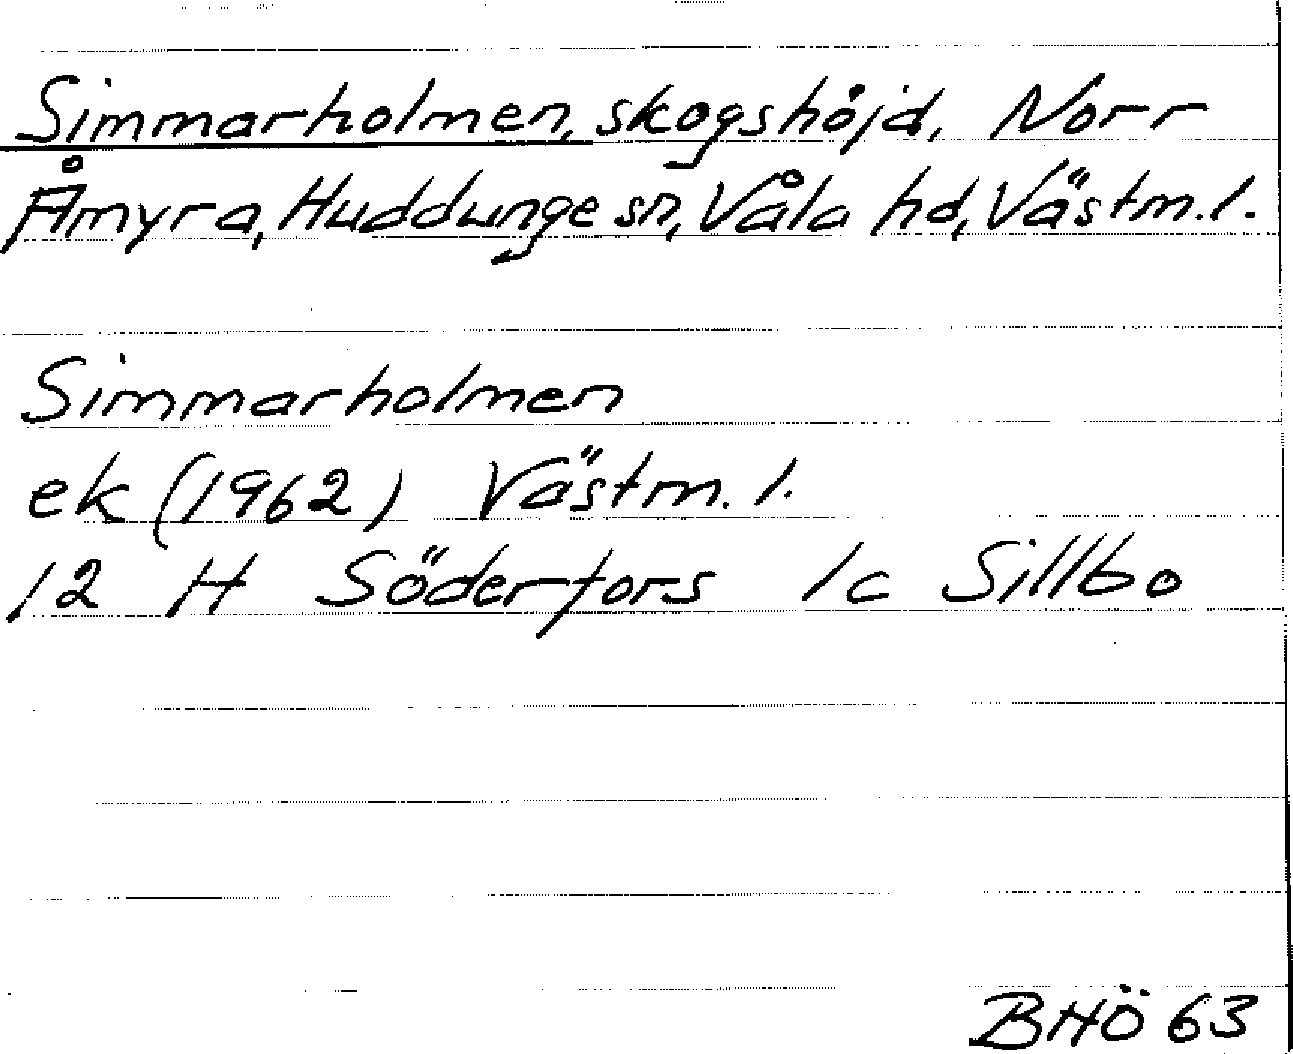 Simmarholmen, skogshöjd, Norr
Åmyra, Huddunge sn, Våla hd, Västm. l.
Simmarholmen
ek (1962) Västm. l.
12 H Söderfors 1c Sillbo
BHÖ 63